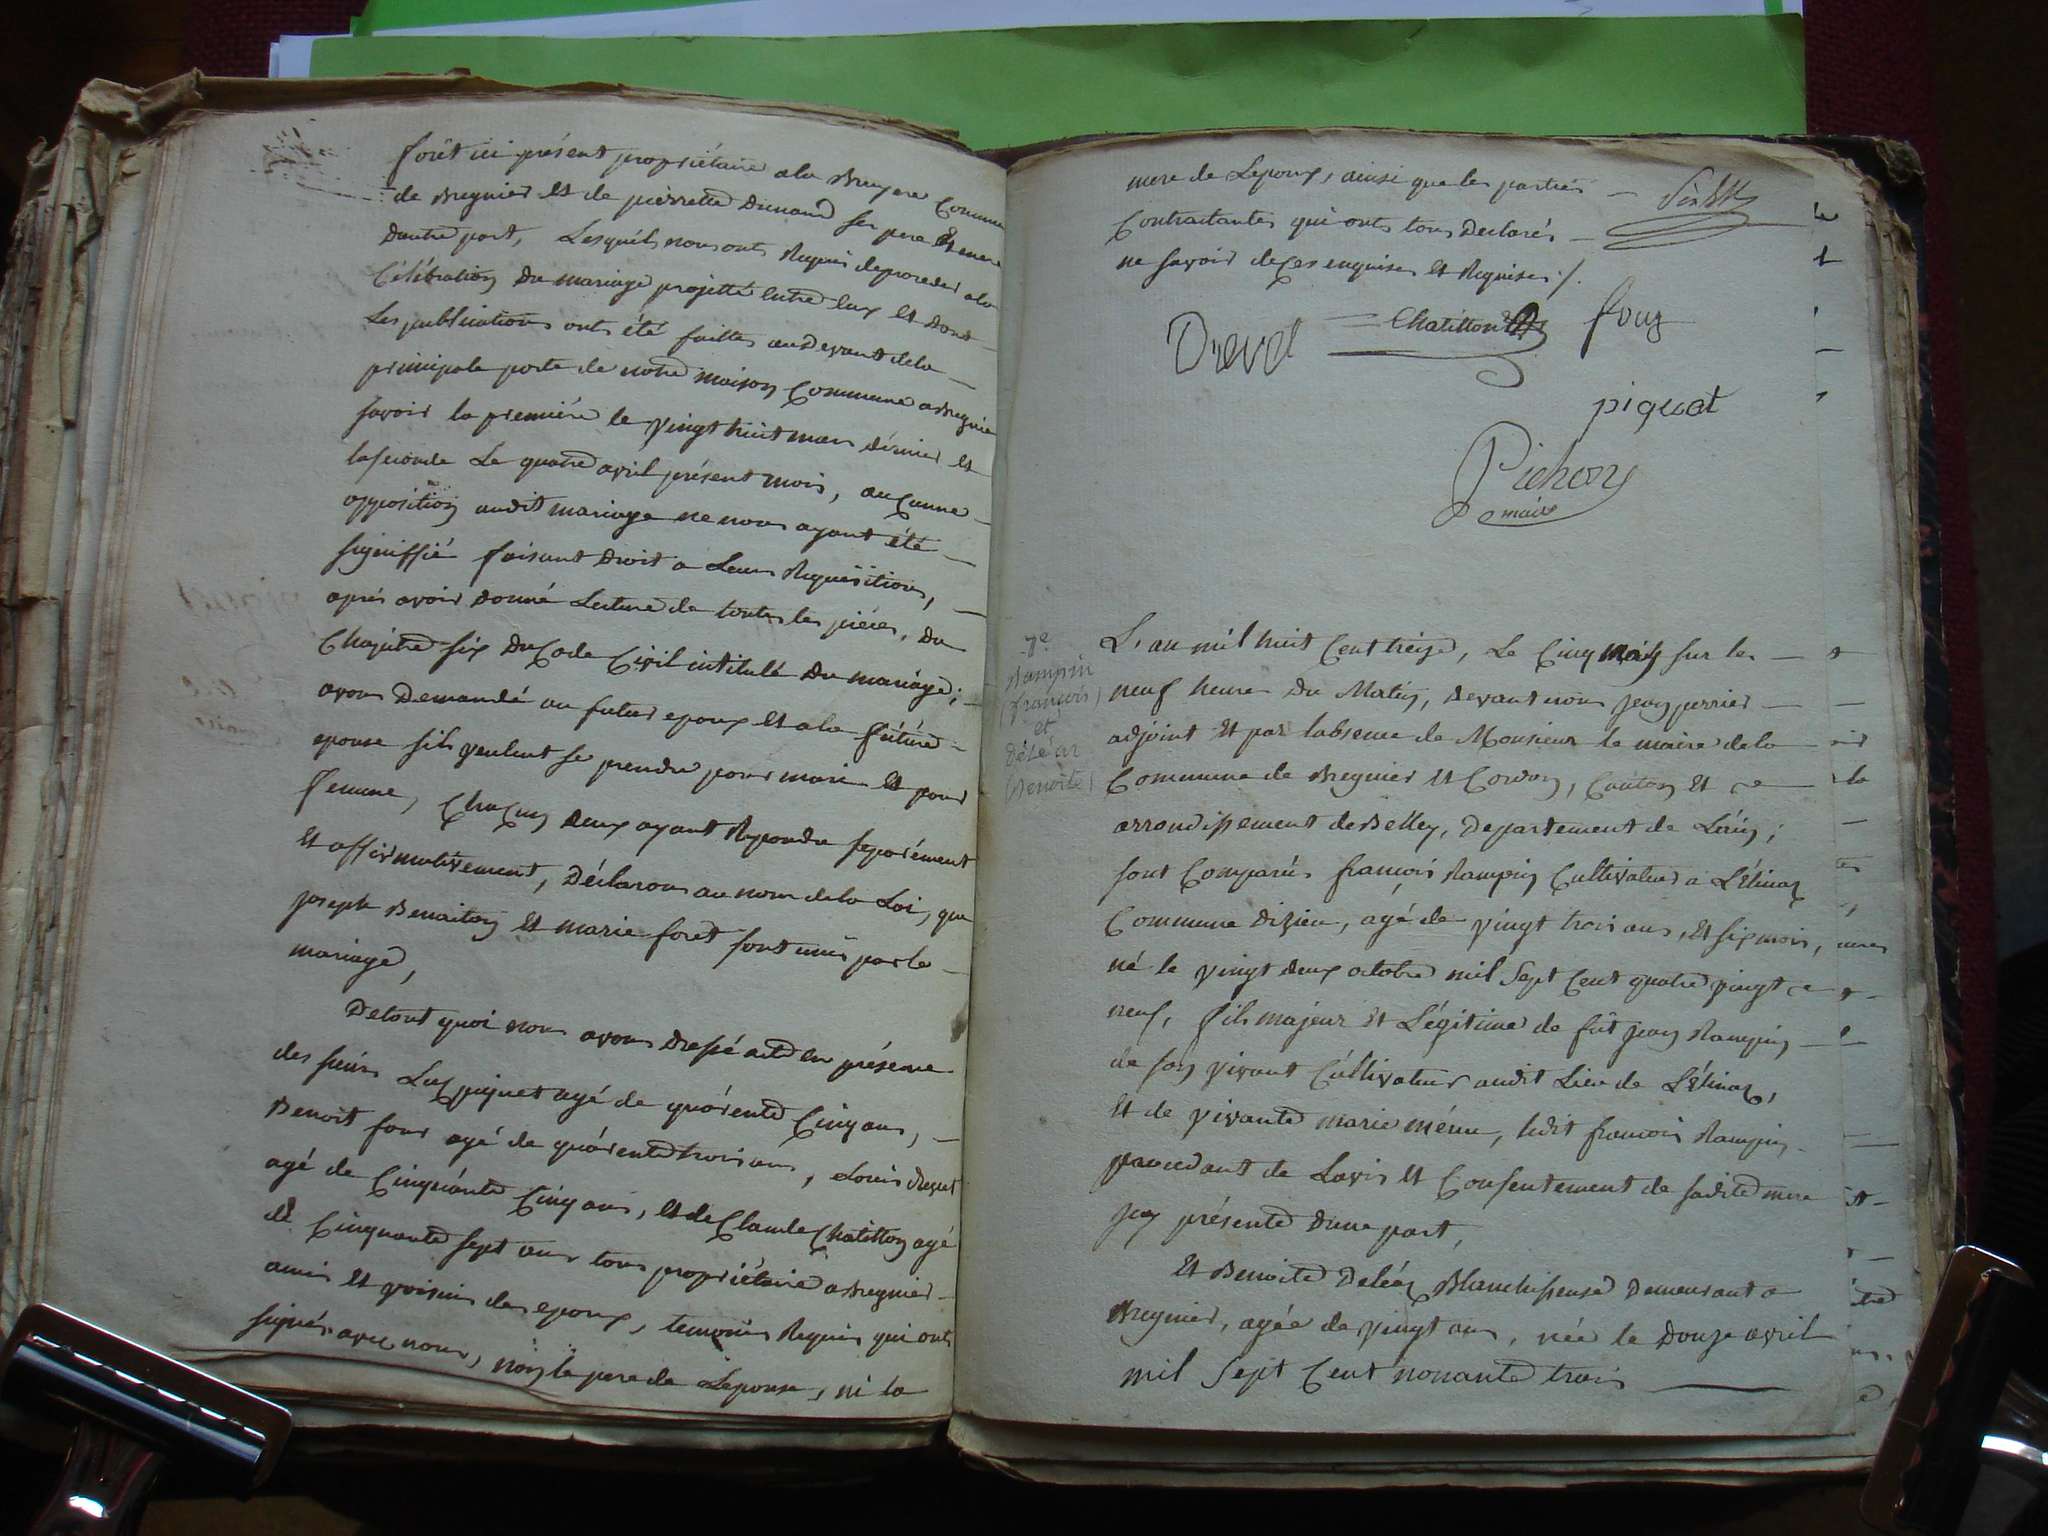 forêt ici présent propriétaire a la Bruyere Commune
de Bregnier et de pierrette Dunand ses pere et mere
Dautre part, Lesquels nous onts Requis deproceder ala
Célébration Du mariage projetté Entre Eux et dont
Les publications onts été faittes audevant dela
principale porte de notre maison Commune a Bregnier
savoir la premiére le vingt huit mars dérnier et
laseconde Le quatre avril présent mois, auCunne
opposition audit mariage ne nous ayant été
signiffié faisant Droit a Leurs Requisitions,
aprés avoir Donné Lecture de toutes les piéces, Du
Chapitre six Du Code Civil intitulé Du mariage;
avons Demandé au futur epoux et a la fúture
epouse sils veulent se prendre pour mari et pour
femme, ChaCun Deux ayant Repondu separément
et affirmativement, Déclarons au nom de la Loi, que
joseph Benaiton et marie foret sont unis par le
mariage,
Detout quoi nous avons Dressé acte En présence
des sieurs Luc piquet agé de quárente Cinq ans,
Benoit four agé de quárente trois ans, Louis Drevet
agé de Cinquánte Cinq ans, et de Claude Chatillon agé
de Cinquante sept ans tous propriétaire a Bregnier
amis et voisins des epoux, temoins Requis qui onts
signés avec nous, non le pere de Lepouse, ni la
mere de Lepoux, ainsi que les parties
Contractantes qui onts tous Declarés
ne savoir de Ces enquises et Requises ./.
Drevet Chatillon four
piquet
Pichon
maire
7e
Rampin
(françois)
et
Deléaz
(Benoite)
L'an mil huit Cent treize, Le Cinq mai sur les
neuf heures Du Matin, Devant nous jean perrier
adjoint et par labsence de Monsieur le maire de la
Commune de Bregnier et Cordon, Canton et
arrondissement de Belley, Departement de Lain;
sont Comparús françois Rampin Cultivateur a L'Etinaz
Commune dizieu, agé de vingt trois ans, et six mois,
né le vingt deux octobre mil Sept Cent quatre vingt
neuf, fils majeur et Légitime de fût jean Rampin
de son vivant Cúltivateur audit Lieu de L'Etinaz,
et de vivante marie ménu, ledit francois Rampin
procedant de Lavis et Consentement de sadite mere
icy présente Dune part,
Et Benoite Deléaz Blanchisseuse Demeurant a
Bregnier, agée de vingt ans, née le Douze avril
mil Sept Cent nonante trois